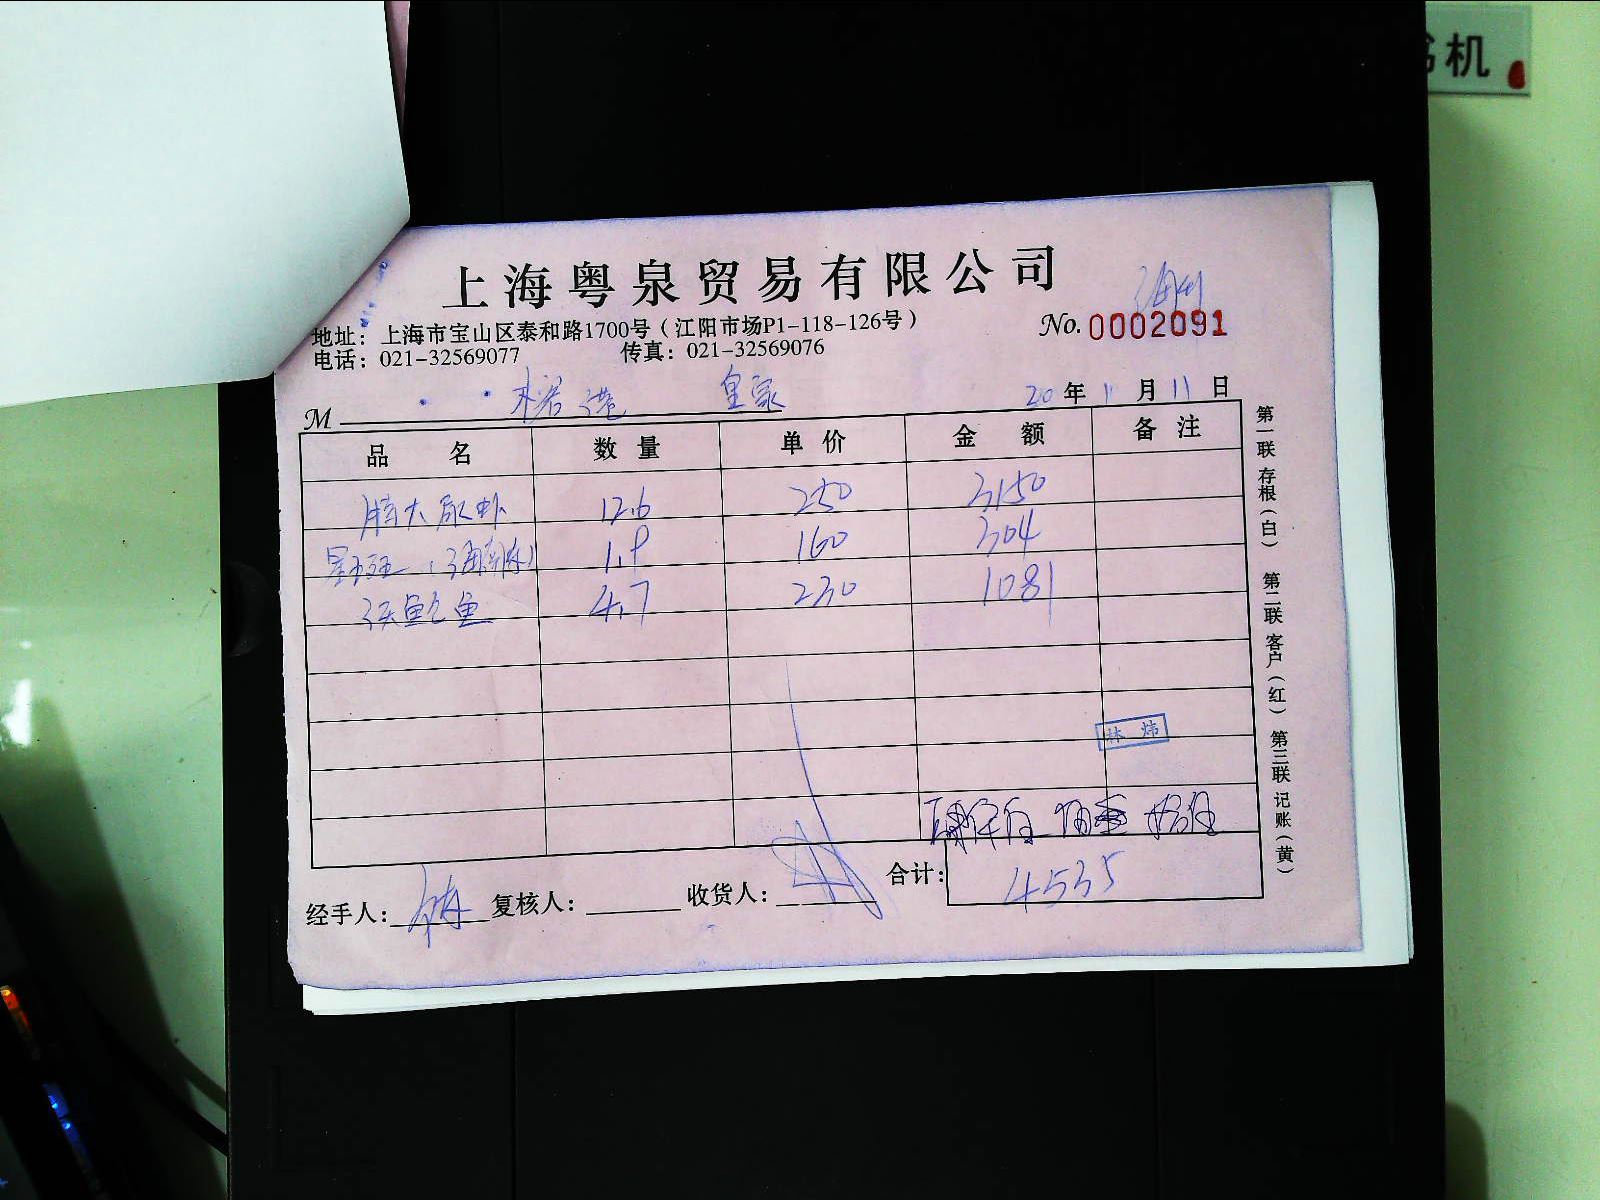 机
上海粤泉贸易有限公司
地址：上海市宝山区泰和路1700号（江阳市场P1-118-126号）
No. 0002091
电话：021-32569077 传真：021-32569076
M 港 皇家 20年11月11日
品名 数量 单价 金额 备注
大尿虾 12.6 250 3150
星斑 1.9 160 304
鲍鱼 4.7 230 1081
林炜
经手人： 复核人： 收货人： 合计：4535
第一联 存根（白） 第二联 客户（红） 第三联 记账（黄）